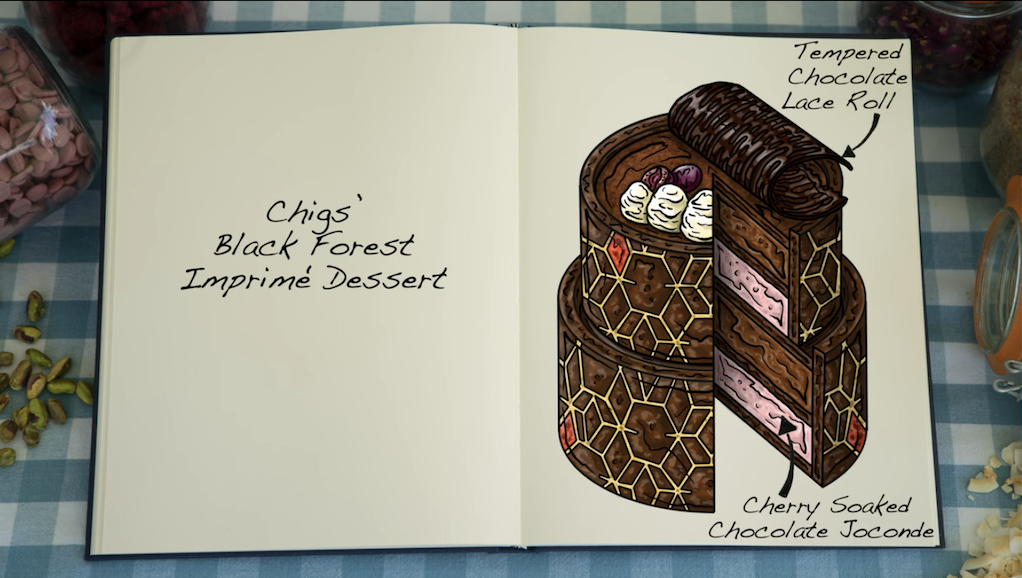 Chigs'
Black Forest
Imprimé Dessert
Tempered
Chocolate
Lace Roll
Cherry Soaked
Chocolate Joconde